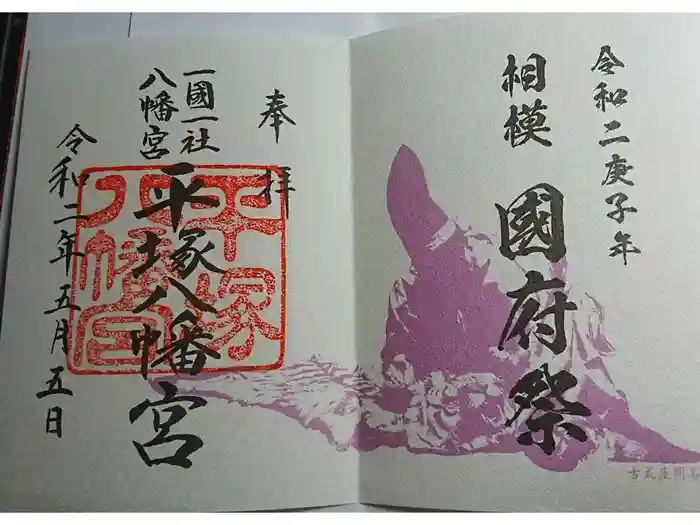 令和二庚子年
相模
國府祭
奉拝
一國一社
八幡宮
平塚八幡宮
令和二年五月五日
平塚
八幡宮